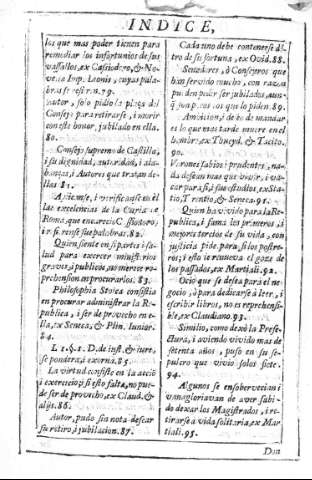 INDICE,
los que mas poder tienen para
remediar los infortunios de sus
vassallos, ex Casiodoro, & No-
vela Imp. Leonis, cuyas pala-
bras se refieren. 79.
Autor, solo pidio la plaça del
Consejo para retirarse, i morir
con este honor, jubilado en ella.
80.
Consejo supremo de Castilla,
i su dignidad, autoridad, i ala-
banças, i Autores que tratan de-
llas 81.
las excelencias de la Curia
Roma, que encareciò Casiodoro;
i se refieren sus palabras. 82.
Quien siente en si partes i sa-
lud para exercer ministerios
graves, i publicos, no merece re-
prehension en procurarlos. 83.
Philosophia Stoica consistia
en procurar administrar la Re-
publica, i ser de provecho en e-
lla, ex Seneca, & Plin. Iunior.
84.
L 1. §. 1. D. de inst. & iure,
se pondera, i exorna. 85.
La virtud consiste en la acciõ
i exercicio, i si esto falta, no pue-
de ser de provecho, ex Claud. &
alijs. 86.
Autor, pudo sin nota desear
su retiro, i jubilacion. 87.
Cada uno debe contenerse dẽ-
tro de su fortuna, ex Ovid. 88.
Senadores, ò Consejeros que
han servido mucho, con razon
pueden pedir ser jubilados, aun-
que son pocos los que lo piden. 89.
Ambicion, i deseo de mandar
es lo que mas tarde muere en el
hombre, ex Tacyd. & Tacito.
90.
Varones sabios i prudentes, na-
da desean mas que vivir, i va-
car para si, i sus estudios, ex Sta-
tio, Terentio, & Seneca. 91.
Quien ha vivido para la Re-
publica, i suma los primeros i
mejores tercios de su vida, con
justicia pide para si los postre-
ros; i esto le renueva el goze de
los passados, ex Martiali. 92.
Ocio que se desea para el ne-
gocio, ò para dedicarse à leer, i
escribir libros, no es reprehensi-
ble, ex Claudiano. 93.
Similio, como dexò la Prefe-
ctura, i aviendo vivido mas de
setenta años, puso en su se-
pulcro que vivio solos siete.
94.
Algunos se ensobervecian i
vanagloriavan de aver sabi-
do dexar los Magistrados, i re-
tirarse à vida solitaria, ex Mar-
tiali. 95.
Dua